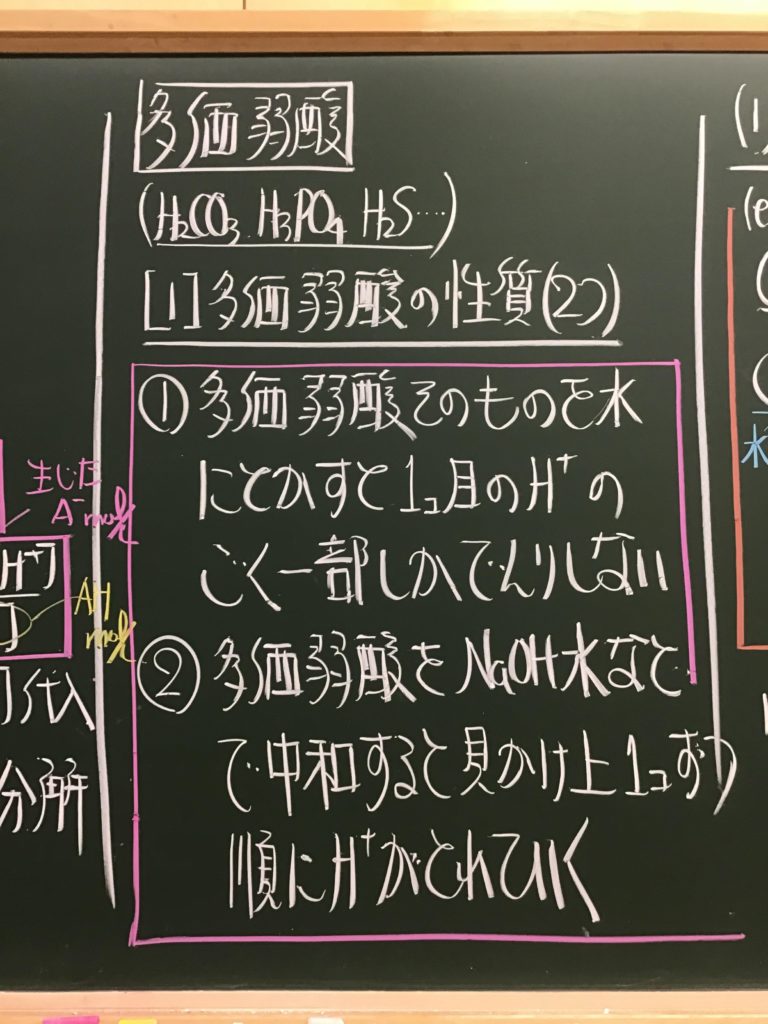 多価弱酸
(H₂CO₃ H₃PO₄ H₂S…)
[1]多価弱酸の性質(2つ)
① 多価弱酸そのものを水
にとかすと1コ目のH⁺の
ごく一部しかでんりしない
② 多価弱酸をNaOH水など
で中和すると見かけ上1コずつ
順にH⁺がとれていく
生じた
A⁻mol/ℓ
H⁺]
]
AH
mol/ℓ
代入
分解
(1)
(e
水